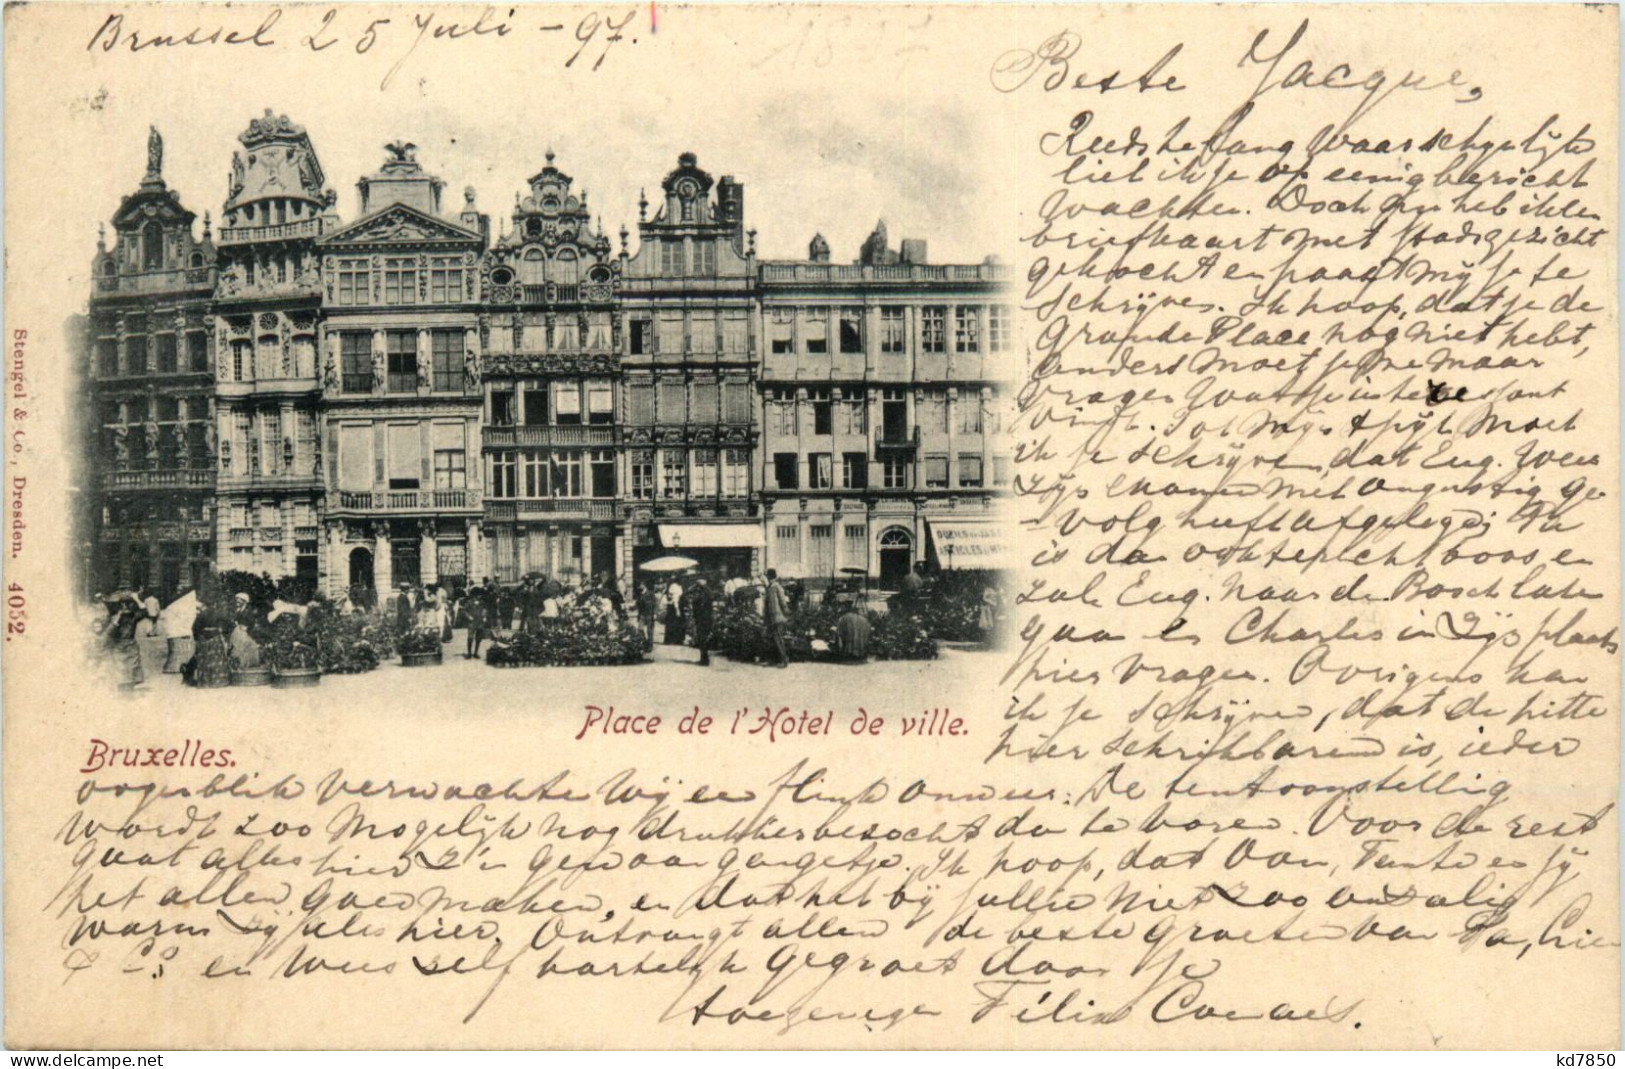 Brussel 25 Juli - 97.
Beste Jacque,
Reeds te lang waarschynlijk
liet ik je op eenig bericht
wachten. Doch nu heb ik een
briefkaart met stadsgezicht
gekocht en haast mij je te
schrijven. Ik hoop, dat je de
Grande Place nog niet hebt,
anders moet je me maar
vragen wat je interessant
vindt. Tot mijn spijt moet
ik je schrijven, dat Eug. weer
zijn examen met ongunstig ge-
-volg heeft afgelegd; Pa
is dan ook terecht boos en
zal Eug. naar de Bosch laten
gaan en Charles in zijn plaats
hier vragen. Overigens kan
ik je schrijven, dat de hitte
hier schrikbarend is, ieder
oogenblik verwachten wij een flink onweer. De tentoonstelling
wordt zoo mogelijk nog drukker bezocht dan te voren. Voor de rest
gaat alles hier z'n gewoon gangetje. Ik hoop, dat Oom, Tante en jij
het allen goed maken, en dat het bij jullie niet zoo onzalig
warm zij als hier. Ontvangt allen de beste groeten van Pa,
en wees zelf hartelijk gegroet door je
toegenegen Félix
Bruxelles.
Place de l'Hotel de ville.
Stengel & Co., Dresden. 4052.
ARTICLES
kd7850